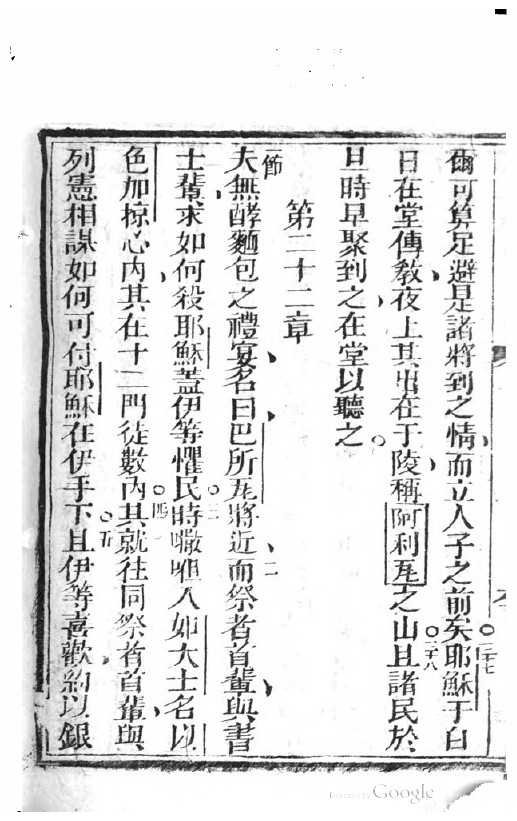 爾可算足避是諸將到之情、而立人子之前矣。二十七耶穌于白
日在堂傳教、夜上其出在于陵、稱阿利瓦之山。二十八且諸民於
旦時早聚到之、在堂以聽之。
第二十二章
一節夫無酵麵包之禮宴、名曰巴所瓦、將近。二而祭者首輩、與書
士輩、求如何殺耶穌、蓋伊等懼民。三時嘰呾入如大士名以
色加掠心內、其在十二門徒數內。四其就往同祭者首輩、與
列憲相謀、如何可付耶穌在伊手下。五且伊等喜歡、約以銀
Digitized by Google